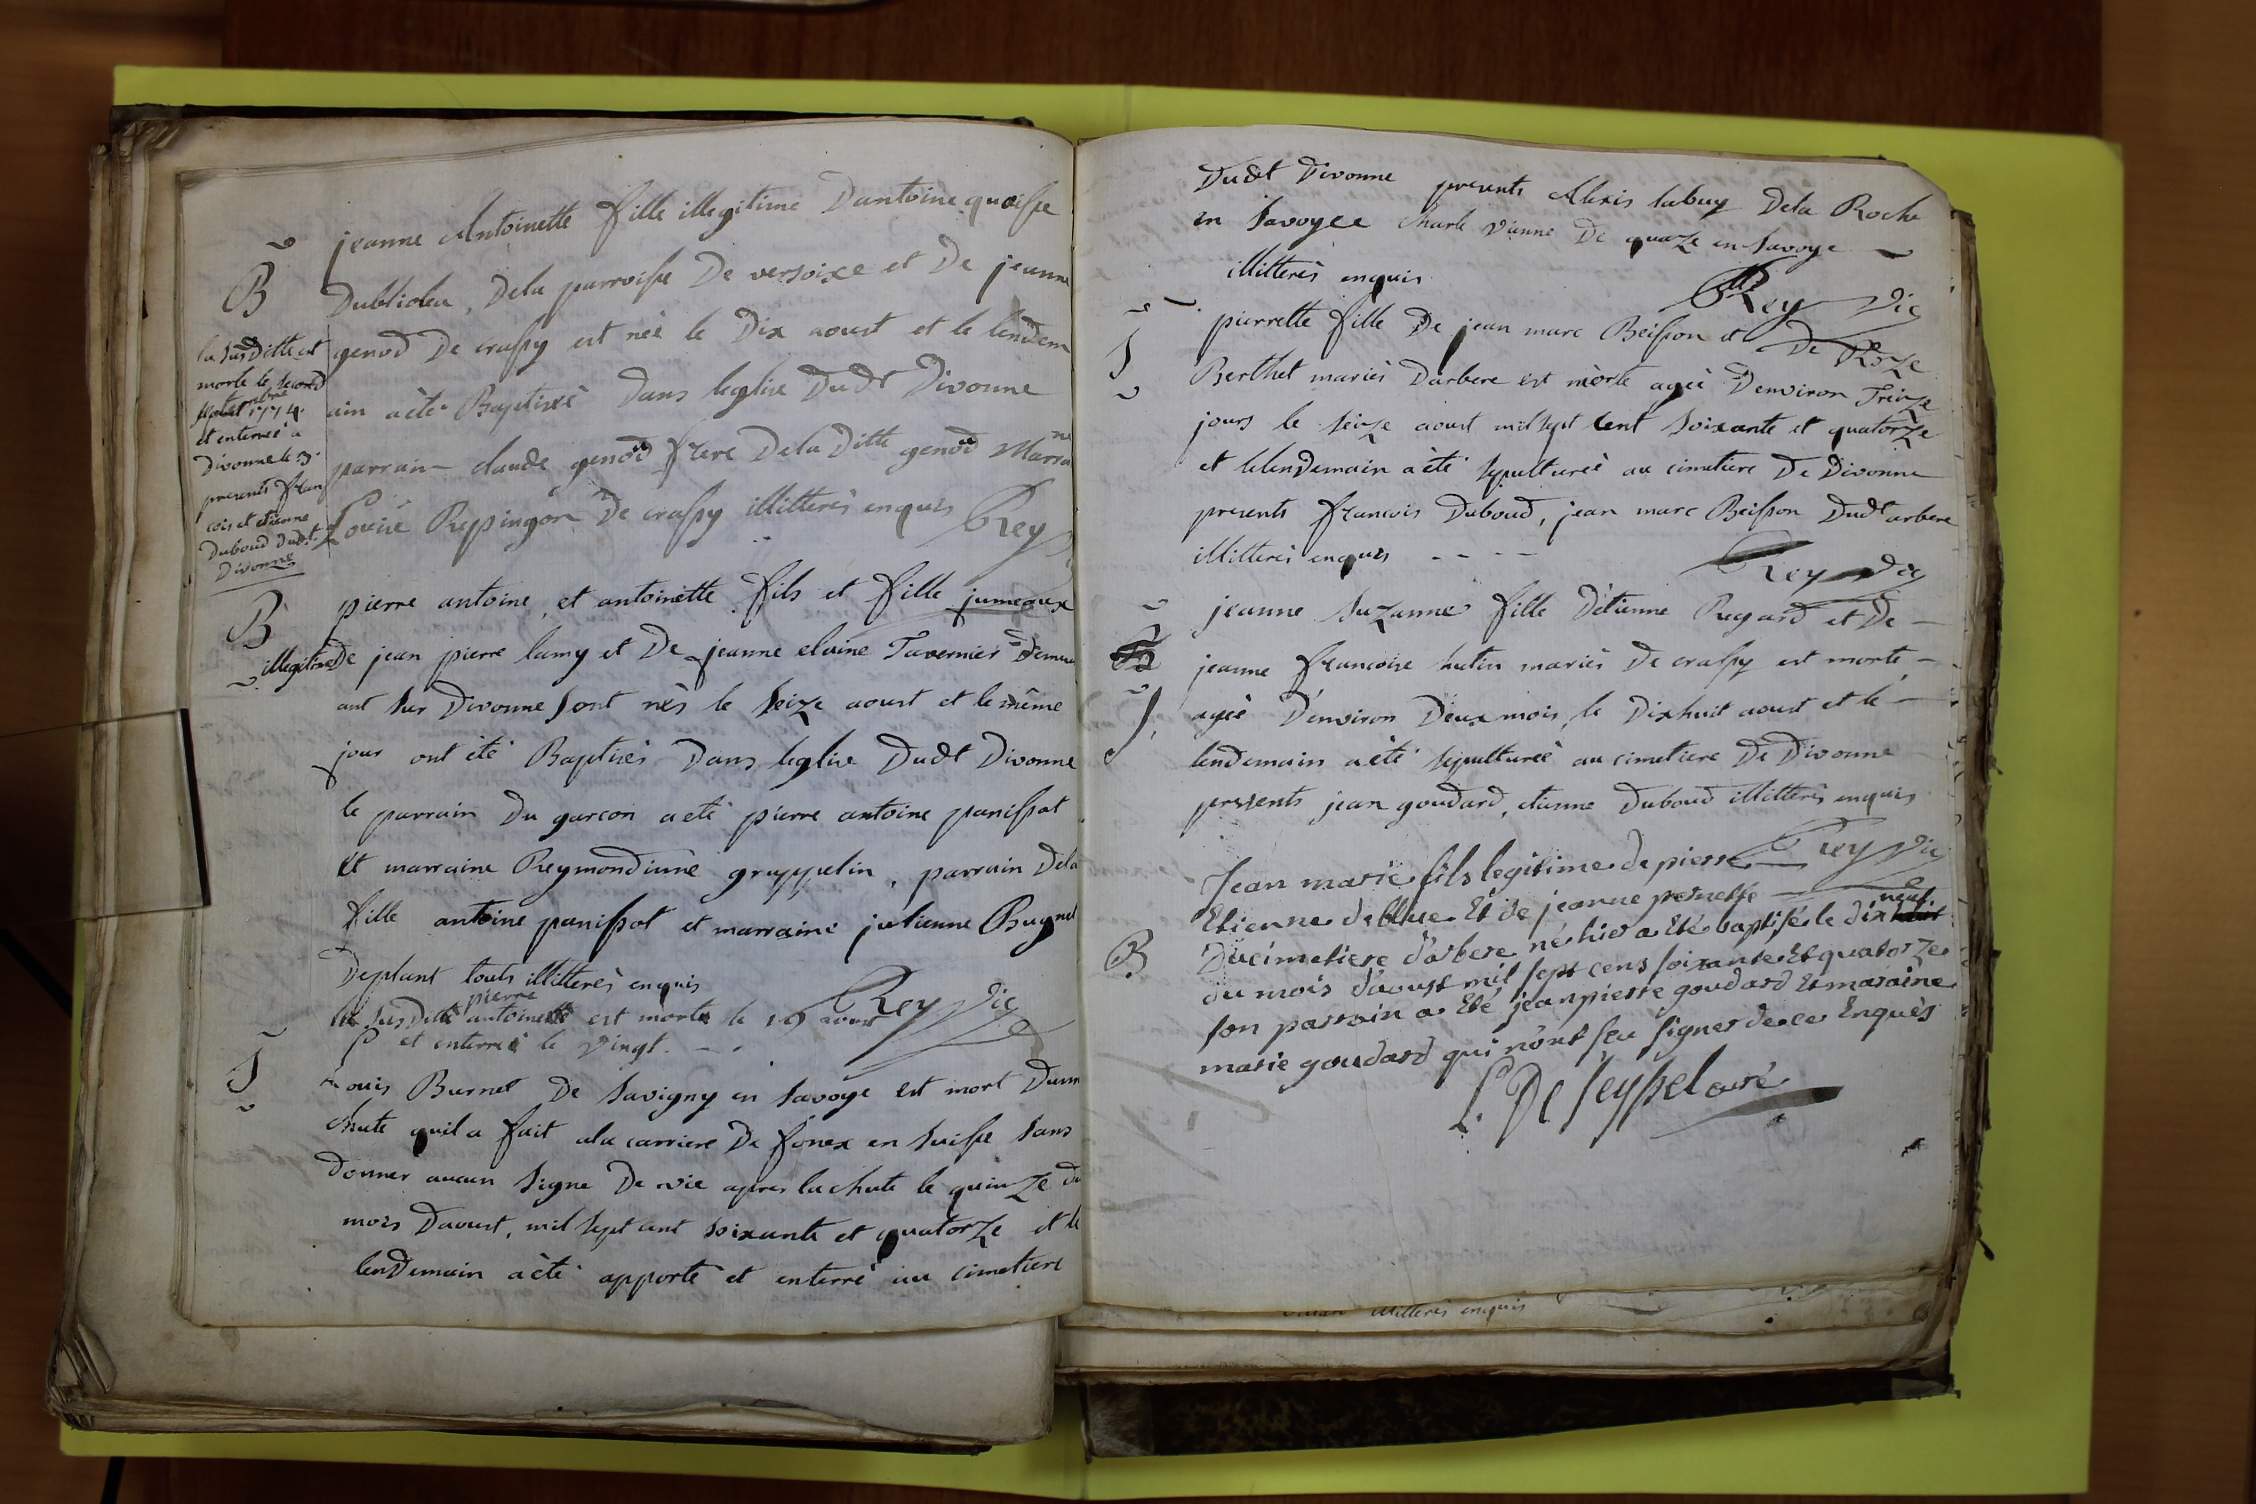 B
jeanne Antoinette fille illegitime Dantoine quaisse
Dubliolea, Dela parroisse De versoixe et De jeanne
genod De crassy est née le Dix aoust et le lendem
ain a été Baptisée Dans leglise Dudt Divonne
parrain claude genod frere Dela Ditte genod Marra
Louise Repingon De crassy illitterés enquis Rey
la susDitte est
morte le second
septembre 1774.
et enterrée a
Divonne le 3.
presents fran
cois et etienne
Duboud Dudt
Divonne
B
illegitime
pierre antoine et antoinette fils et fille jumeaux
De jean pierre lamy et De jeanne elaine Tavernier Demeur
ant sur Divonne sont nés le seize aoust et le même
jour ont été Baptisés Dans leglise Dudt Divonne
le parrain Du garcon a eté pierre antoine panissot
et marraine Reymondinne grappelin, parrain Dela
fille antoine panissot et marraine julienne Bugnet
Deplant touts illitterés enquis
Rey Vic
le susDitt pierre antoine est mort le 19 aoust
et enterré le vingt.
S
Louis Burnet De Savigny en Savoye est mort Dune
chute quil a fait ala carriere De fonex en Suisse sans
donner aucun signe De vie apres la chute le quinze du
mois Daoust, mil sept cent soixante et quatorze et le
lenDemain a été apporté et enterré au cimetiere
Dudt Divonne presents Alexis labuy Dela Roche
en Savoyee Charle vianne De quaze en Savoye
illitterés enquis
Rey Vic
S
pierrette fille De jean marc Beisson et De Roze
Berthet mariés Darbere est morte agée Denviron Treize
jours le seize aoust mil sept cent soixante et quatorze
et le lenDemain a été sepulturée au cimetiere De Divonne
presents francois Duboud, jean marc Beisson Dudt arbere
illitterés enquis
Rey Vic
S
jeanne Suzanne fille Détienne Regard et De
jeanne francoise hutin mariés De crassy est morte
agée Denviron Deux mois, le Dixhuit aoust et le
lenDemain a été sepulturée au cimetiere De Divonne
presents jean goudard, etienne Duboud illitterés enquis
Rey Vic
B
Jean marie fils legitime de pierre
Etienne deblue Et de jeanne pernette
Ducimetiere d'arbere né hier a Eté baptisé le dix neuf
du mois d'aoust mil sept cens soixante Et quatorze
son parrain a Eté jean pierre goudard Et maraine
marie goudard qui n'ont seu signer de ce Enquès
L. De Seyssel curé
illitterés enquis